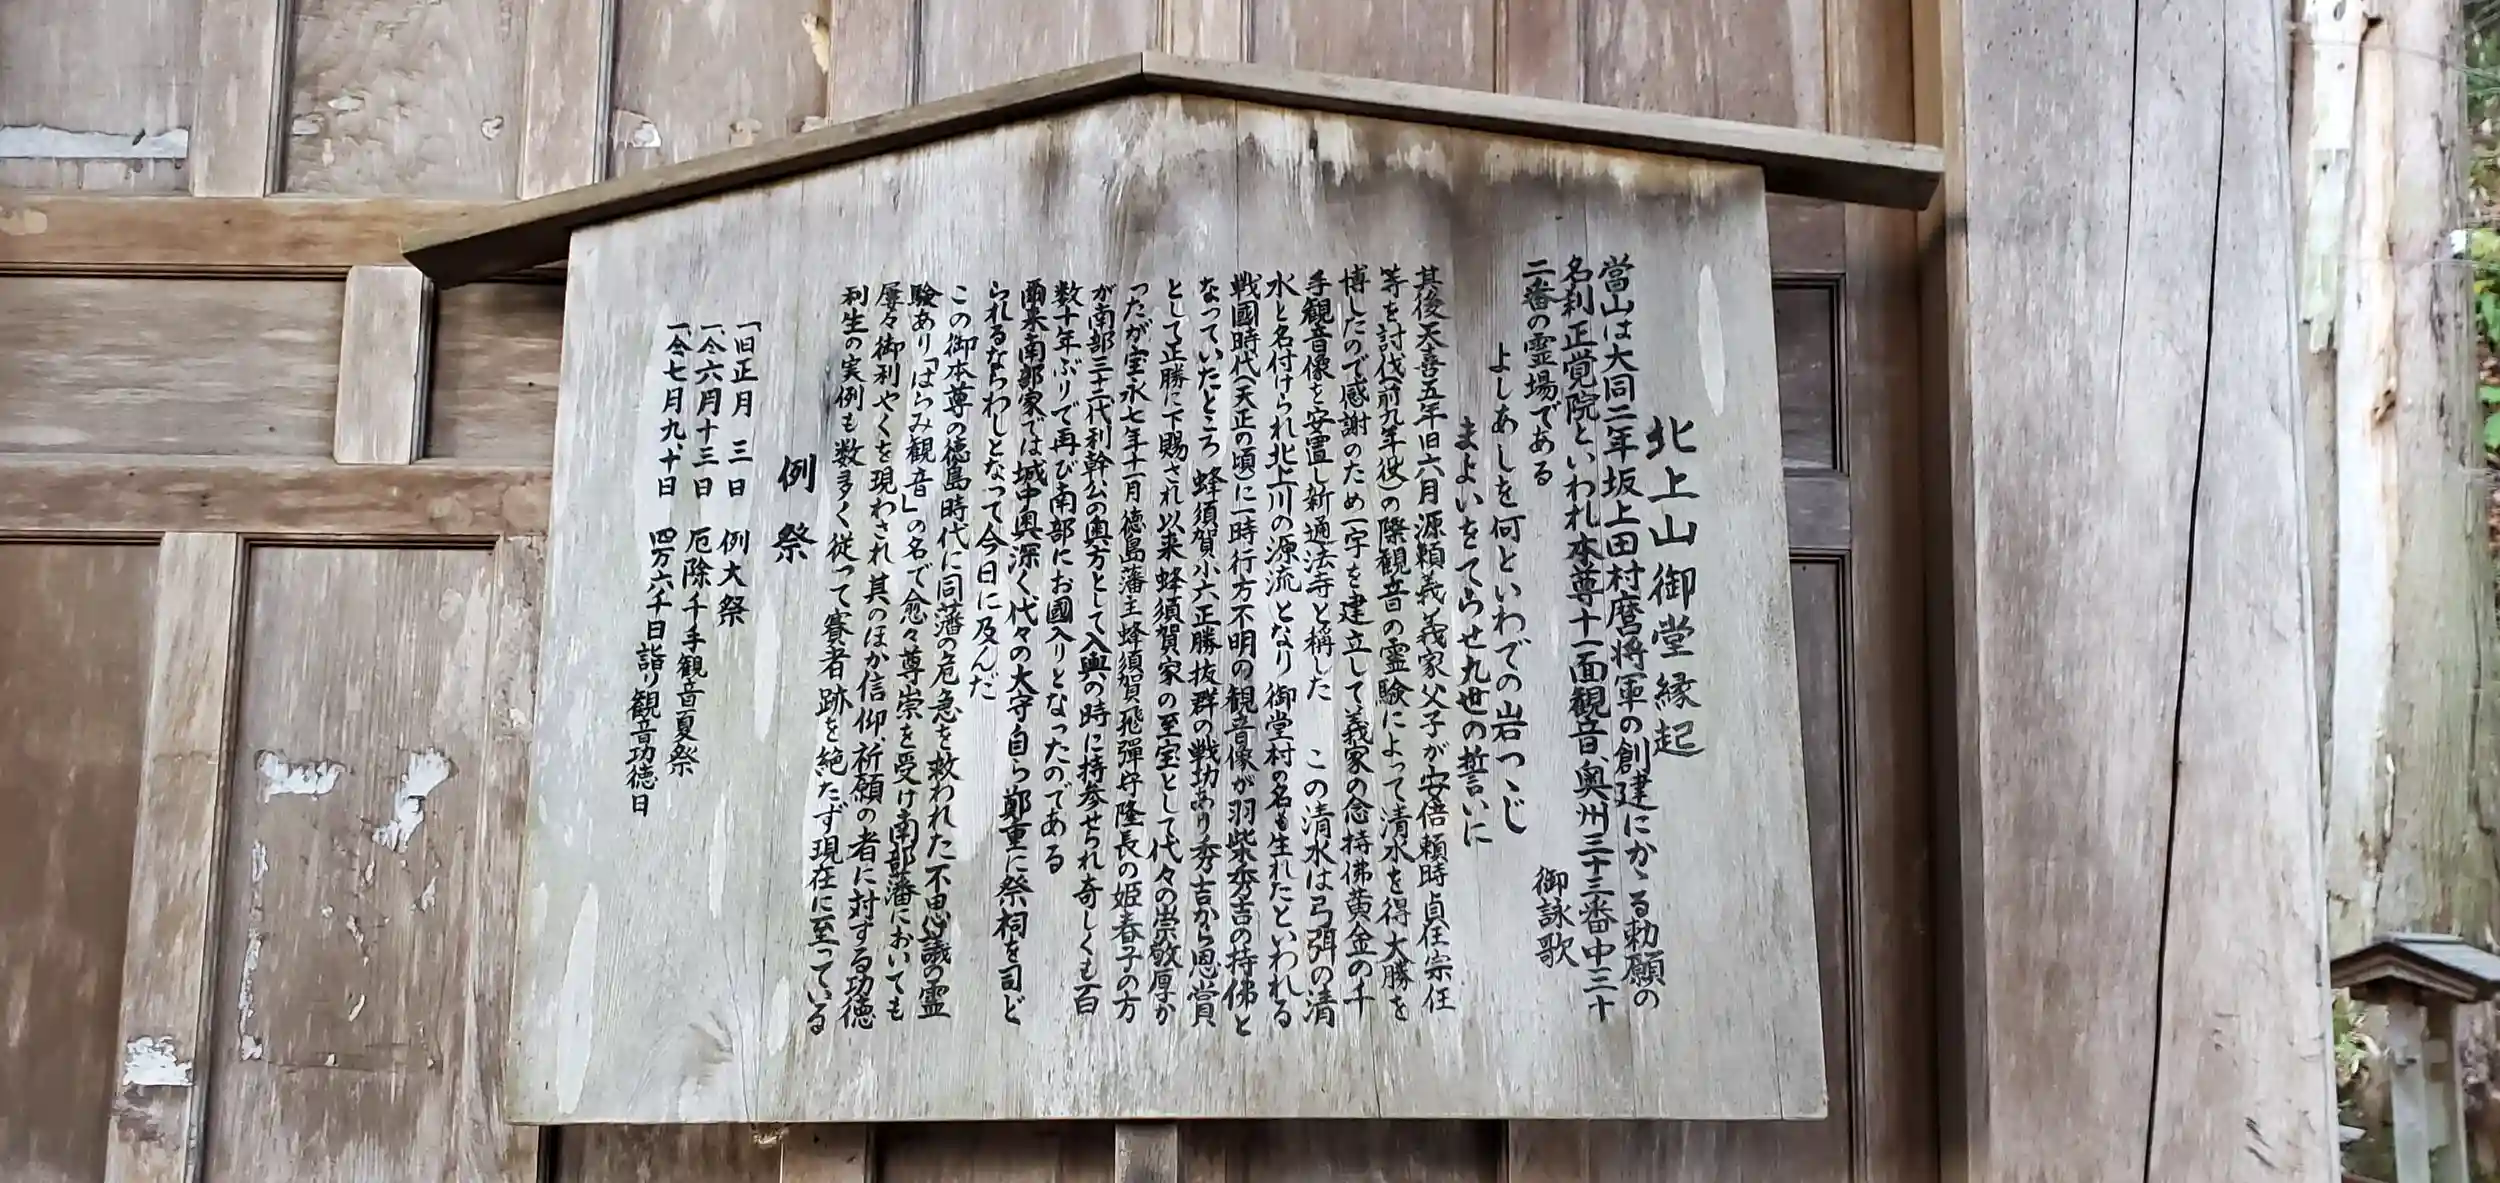 北上山御堂縁起
當山は大同二年坂上田村麿将軍の創建にかゝる勅願の
名刹正覚院といわれ本尊十一面観音、奥州三十三番中三十
二番の霊場である
御詠歌
よしあしを何といわでの岩つゝじ
まよいをてらせ九世の誓いに
其後天喜五年旧六月源頼義義家父子が安倍頼時貞任宗任
等を討伐(前九年役)の際観音の霊験によって清水を得大勝を
博したので感謝のため一宇を建立して義家の念持佛黄金の千
手観音像を安置し新通法寺と稱した この清水は弓弭の清
水と名付けられ北上川の源流となり御堂村の名も生れたといわれる
戦國時代(天正の頃)に一時行方不明の観音像が羽柴秀吉の持佛と
なっていたところ 蜂須賀小六正勝抜群の戦功あり秀吉から恩賞
として正勝に下賜され以来蜂須賀家の至宝として代々の崇敬厚か
ったが宝永七年十一月徳島藩主蜂須賀飛彈守隆長の姫春子の方
が南部三十二代利幹公の奥方として入輿の時に持参せられ奇しくも六百
数十年ぶりで再び南部にお國入りとなったのである
爾来南部家では城中奥深く代々の大守自ら鄭重に祭祠を司ど
られるならわしとなって今日に及んだ
この御本尊の徳島時代に同藩の危急を救われた不思議の霊
験あり「はらみ観音」の名で愈々尊崇を受け南部藩においても
屡々御利やくを現わされ其のほか信仰、祈願の者に対する功徳
利生の実例も数多く従って賽者跡を絶たず現在に至っている
例祭
一、旧正月 三日 例大祭
一、仝六月十三日 厄除千手観音夏祭
一、仝七月九、十日 四万六千日詣り観音功徳日